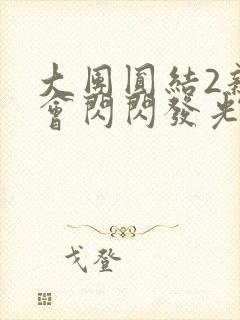 大團圓結2新
會閃閃發光
戈登